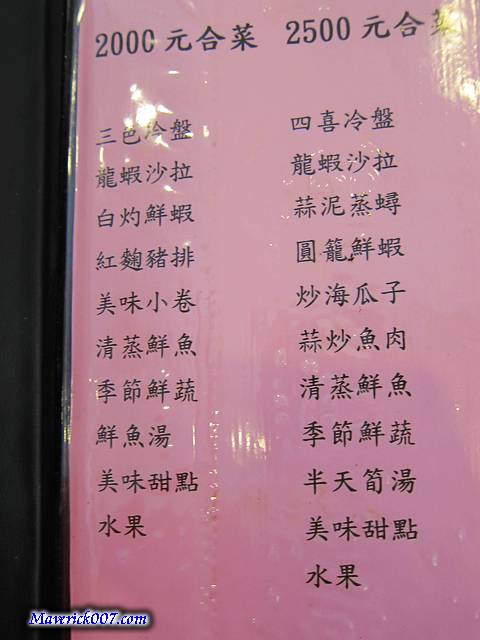 2000 元合菜
三色冷盤
龍蝦沙拉
白灼鮮蝦
紅麴豬排
美味小卷
清蒸鮮魚
季節鮮蔬
鮮魚湯
美味甜點
水果
2500 元合菜
四喜冷盤
龍蝦沙拉
蒜泥蒸蟳
圓籠鮮蝦
炒海瓜子
蒜炒魚肉
清蒸鮮魚
季節鮮蔬
半天筍湯
美味甜點
水果
Maverick007.com